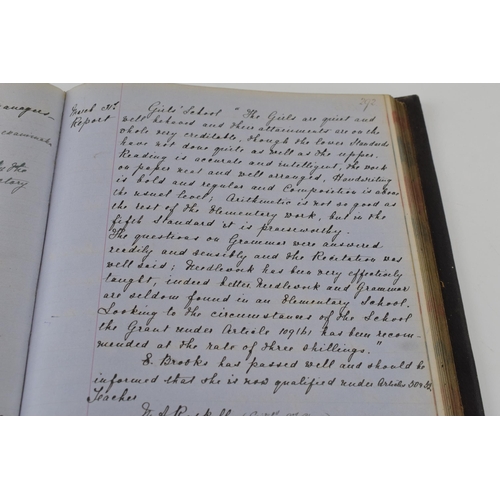 Girls' School "The Girls are quiet and
well behaved and their attainments are on the
whole very creditable, though the lower Standards
have not done quite as well as the upper.
Reading is accurate and intelligent, the work
on paper neat and well arranged, Handwriting
is bold and regular and Composition is above
the usual level; Arithmetic is not so good as
the rest of the Elementary work, but in the
fifth Standard it is praiseworthy.
The questions on Grammar were answered
readily and sensibly and the Recitation was
well said; Needlework has been very effectively
taught, indeed better Needlework and Grammar
are seldom found in an Elementary School.
Looking to the circumstances of the School
the Grant under Article 109(b) has been recom-
mended at the rate of three shillings."
E. Brooks has passed well and should be
informed that she is now qualified under Articles 50 & 52
Teacher
Report